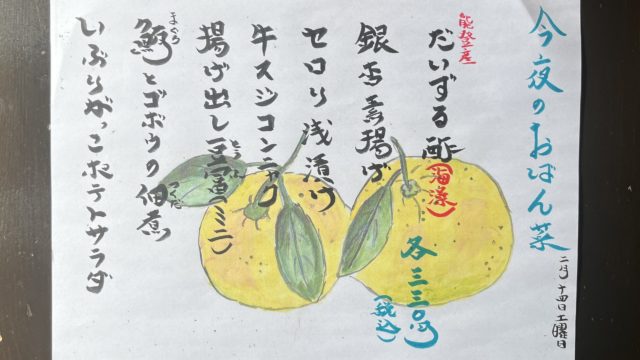 今夜のおばん菜
二月十四日土曜日
能登産
だいずる酢(海藻)
銀杏素揚げ
セロリ浅漬け
牛スジコンニャク
揚げ出し豆富(ミニ)
とうふ
鮪とゴボウの佃煮
まぐろ
つくだ
いぶりがっこポテトサラダ
各三三〇円
(税込)